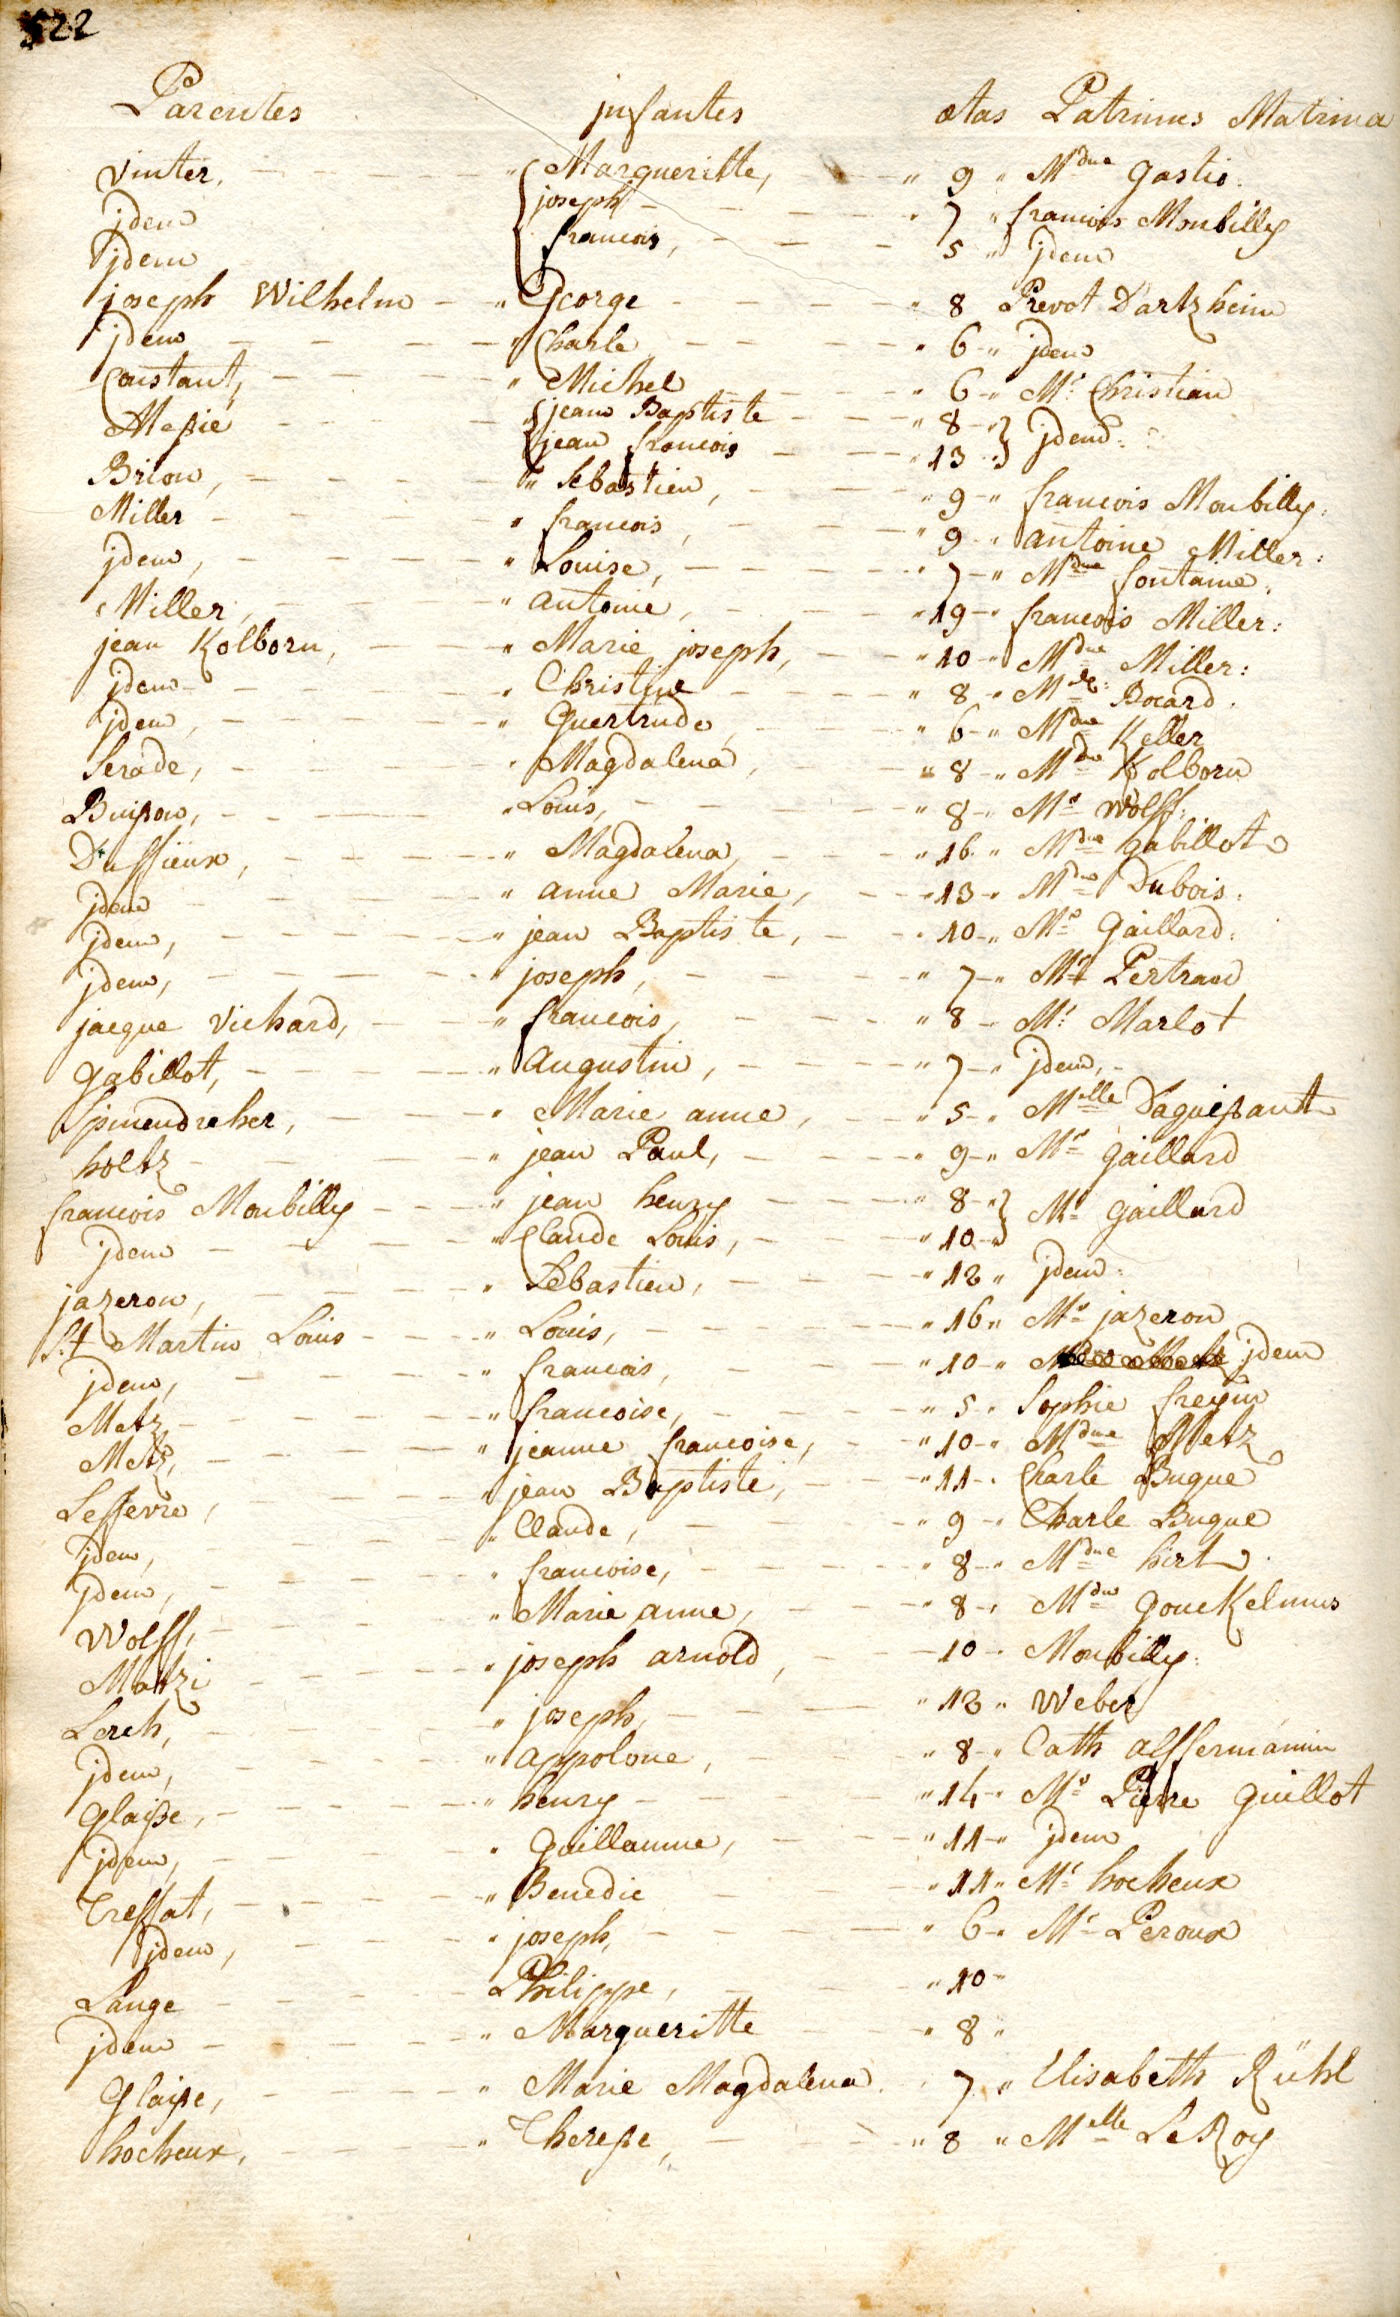 522
Parentes infantes ætas Patrinus Matrina
Vinter, " Margueritte, " 9 " Mdme Gastio.
jdem joseph " 7 " francois Monbilly
jdem francois, 5 " jdem
joseph Wilhelm " George 8 Prevot D'artzheim
jdem " Charle " 6 " jdem
Constant, " Michel 6 " Mr Christian
Alesie " jean Baptiste " 8 " jdem:
jean francois " 13 "
Brion, " Sebastien, " 9 " francois Monbilly:
Miller " francois, " 9 " antoine Miller:
jdem, " Louise, " 7 " Mdme fontaine.
Miller, " antoine, " 19 " francois Miller:
jean Kolborn, " Marie joseph, " 10 " Mdme Miller:
jdem " Christine " 8 " Mde: Bocard.
jdem, " Guertrude, " 6 " Mdme Keller
Serade, " Magdalena, " 8 " Mdme Kolborn
Buison, " Louis, " 8 " Mr Wolff:
Duffieux, " Magdalena, " 16 " Mdme Gabillot
jdem " anne Marie, " 13 " Mdme Dubois.
jdem, " jean Baptiste, " 10 " Mr Gaillard:
jdem, " joseph, " 7 " Mr Pertrand
jacque Vichard, " francois, " 8 " Mr: Marlot
Gabillot, " augustin, " 7 " jdem,
Spinendreher, " Marie anne, " 5 " Melle Daguesant
holtz " jean Paul, " 9 " Mr Gaillard
francois Monbilly " jean henry " 8 " Mr Gaillard
jdem " Claude Louis, " 10 "
jazeron, " Sebastien, " 12 " jdem:
St Martin Louis " Louis, " 16 " Mr jazeron
jdem, " francois, " 10 " jdem
Metz " francoise, " 5 " Sophie freyin
Metz, " jeanne francoise, " 10 " Mdme Metz
Leffevre, " jean Baptiste, " 11 " Charle Bugue
jdem, " Claude, " 9 " Charle Bugue
jdem, " francoise, " 8 " Mdme hirt.
Wolff, " Marie anne, " 8 " Mdme Gouckelmus
Matzi " joseph arnold, 10 " Monbilly:
Lerch, " joseph, " 12 " Weber
jdem, " appolone, " 8 " Cath alffermännin
Glaisse, " henry " 14 " Mr Pierre Guillot
jdem, " Guillaume, " 11 " jdem
Treffat, " Benedic " 11 " Mr hocheux
jdem, " joseph, " 6 " Mr Peroux
Lange Philippe, " 10 "
jdem " Margueritte " 8 "
Glaisse, " Marie Magdalena 7 " Elisabeth Rühl
hocheux, " Therese, " 8 " Melle Le Roy